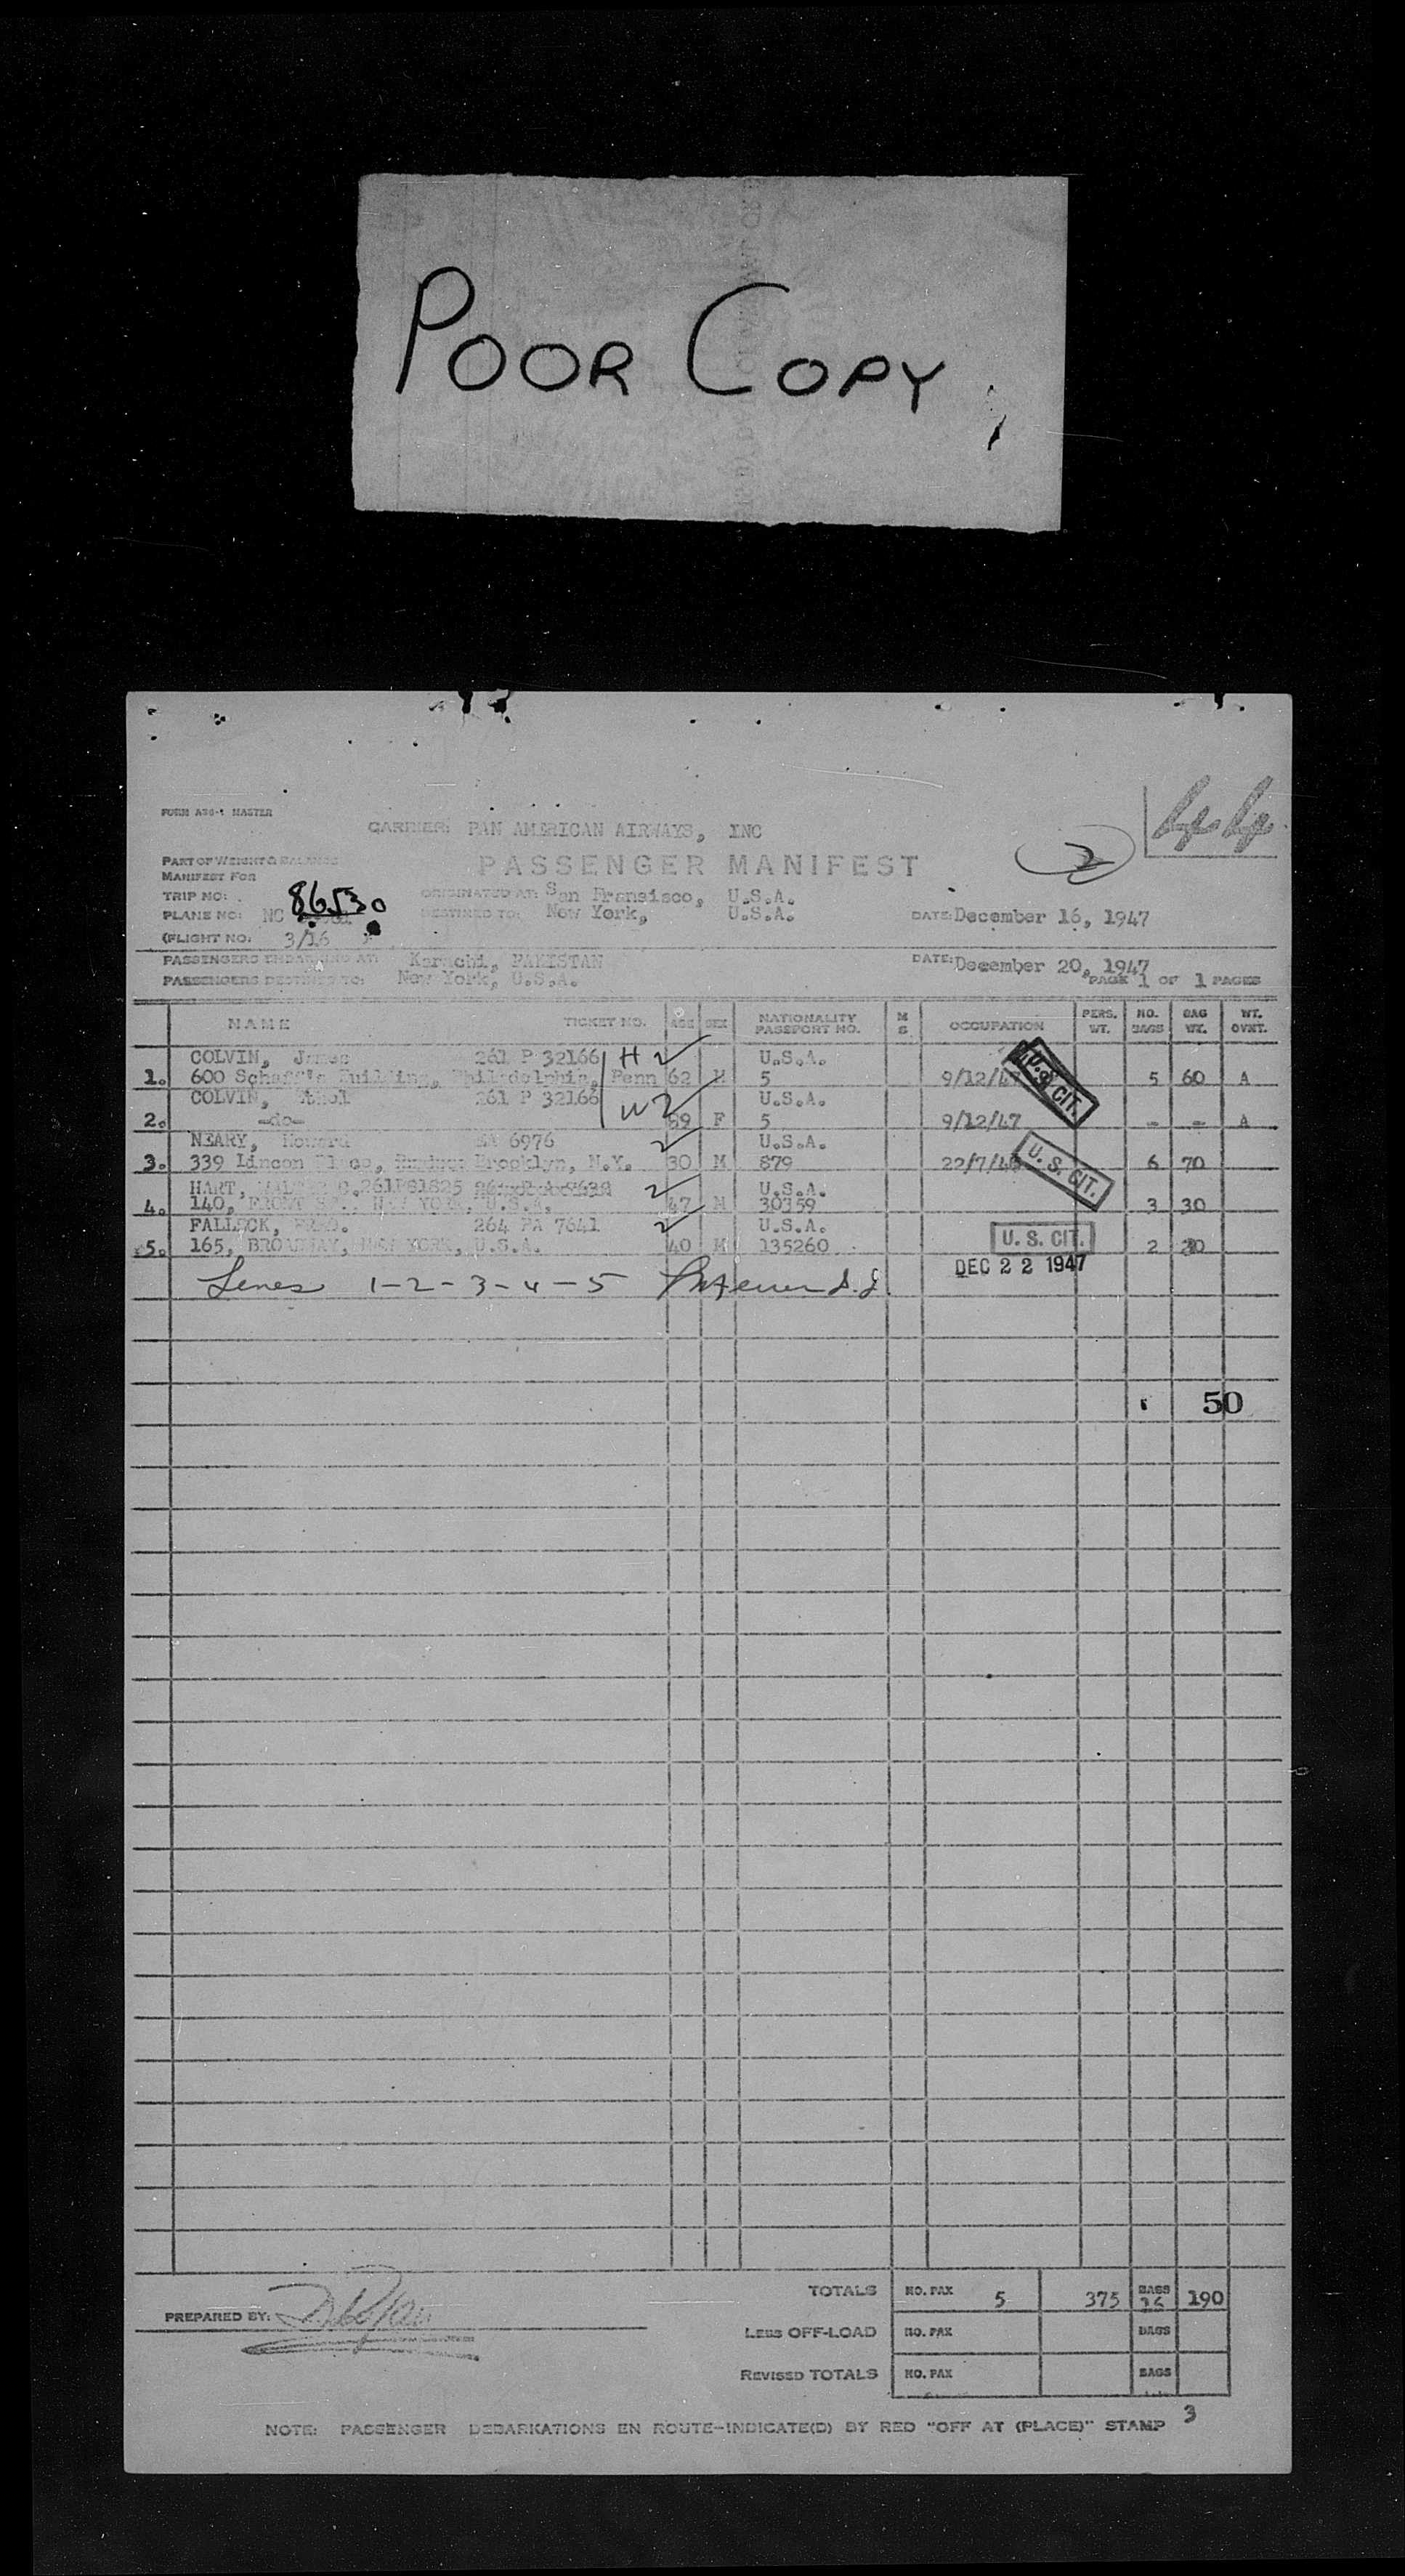 POOR COPY
FORM ABO-1 MASTER
CARRIER: PAN AMERICAN AIRWAYS, INC
44
PART OF WEIGHT & BALANCE
PASSENGER MANIFEST
2
MANIFEST FOR
TRIP NO:
ORIGINATED AT: San Fransisco, U.S.A.
PLANE NO: NC 86530
DESTINED TO: New York, U.S.A.
DATE: December 16, 1947
(FLIGHT NO: 3/16
PASSENGERS EMBARKING AT: Karachi, PAKISTAN
DATE: December 20, 1947
PASSENGERS DESTINED TO: New York, U.S.A.
PAGE 1 OF 1 PAGES
NAME TICKET NO. AGE SEX NATIONALITY PASSPORT NO. M S OCCUPATION PERS. WT. NO. BAGS BAG WT. WT. OVNT.
COLVIN, James 261 P 32166 H U.S.A.
1. 600 Building, Philadelphia, Penn 62 M 5 9/12/47 U.S. CIT. 5 60 A
COLVIN, 261 P 32166 W U.S.A.
2. -do- 59 F 5 9/12/47 - - A
NEARY, Howard EA 6976 U.S.A.
3. 339 Lincon Place, Brooklyn, N.Y. 30 M 879 22/7/46 U. S. CIT. 6 70
HART, 261P81825 U.S.A.
4. 140, FRONT ST., NEW YORK, U.S.A. 47 M 30359 3 30
FALLOCK, FRED. 264 PA 7641 U.S.A.
5. 165, BROADWAY, NEW YORK, U.S.A. 40 M 135260 U. S. CIT. 2 30
Lines 1-2-3-4-5
DEC 22 1947
50
TOTALS NO. PAX 5 375 BAGS 16 190
PREPARED BY:
LESS OFF-LOAD NO. PAX BAGS
REVISED TOTALS NO. PAX BAGS
NOTE: PASSENGER DEBARKATIONS EN ROUTE-INDICATE(D) BY RED "OFF AT (PLACE)" STAMP 3